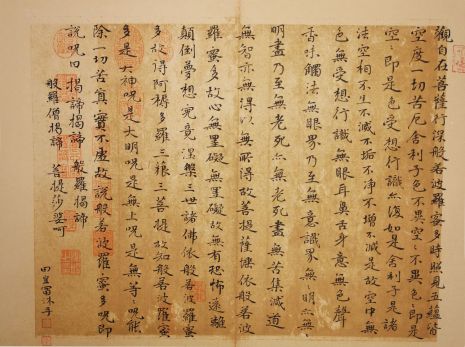 觀自在菩薩行深般若波羅蜜多時照見五蘊皆
空度一切苦厄舍利子色不異空〻不異色〻即是
空〻即是色受想行識亦復如是舍利子是諸
法空相不生不滅不垢不淨不增不減是故空中無
色無受想行識無眼耳鼻舌身意無色聲
香味觸法無眼界乃至無意識界無〻明亦無〻
明盡乃至無老死亦無老死盡無苦集滅道
無智亦無得以無所得故菩提薩埵依般若波
羅蜜多故心無罣礙無罣礙故無有恐怖遠離
顛倒夢想究竟涅槃三世諸佛依般若波羅蜜
多故得阿耨多羅三藐三菩提故知般若波羅蜜
多是大神呪是大明呪是無上呪是無等〻呪能
除一切苦真實不虛故說般若波羅蜜多呪即
說呪曰 揭諦揭諦 般羅揭諦
般羅僧揭諦 菩提莎婆呵
沐手